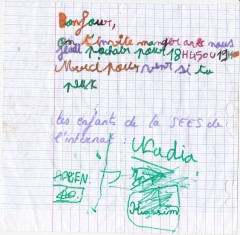 Bonjour,
on t'invite manger avec nous
jeudi prochain pour 18H45 ou 19H
Merci pour venir si tu
peux
les enfant de la SEES de
l'internat :
Nadia
ADRIEN